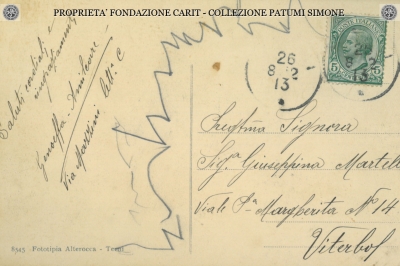 PROPRIETA' FONDAZIONE CARIT - COLLEZIONE PATUMI SIMONE
Saluti cordiali e
ringraziamenti
Genoeffa Amilcare
Via Mazzini Att° C
POSTE ITALIANE
26
8-12
13
Preg/ma Signora
Sig.a Giuseppina Martell
Viale P.a Margherita N° 14
Viterbo
8545 Fototipia Alterocca - Terni